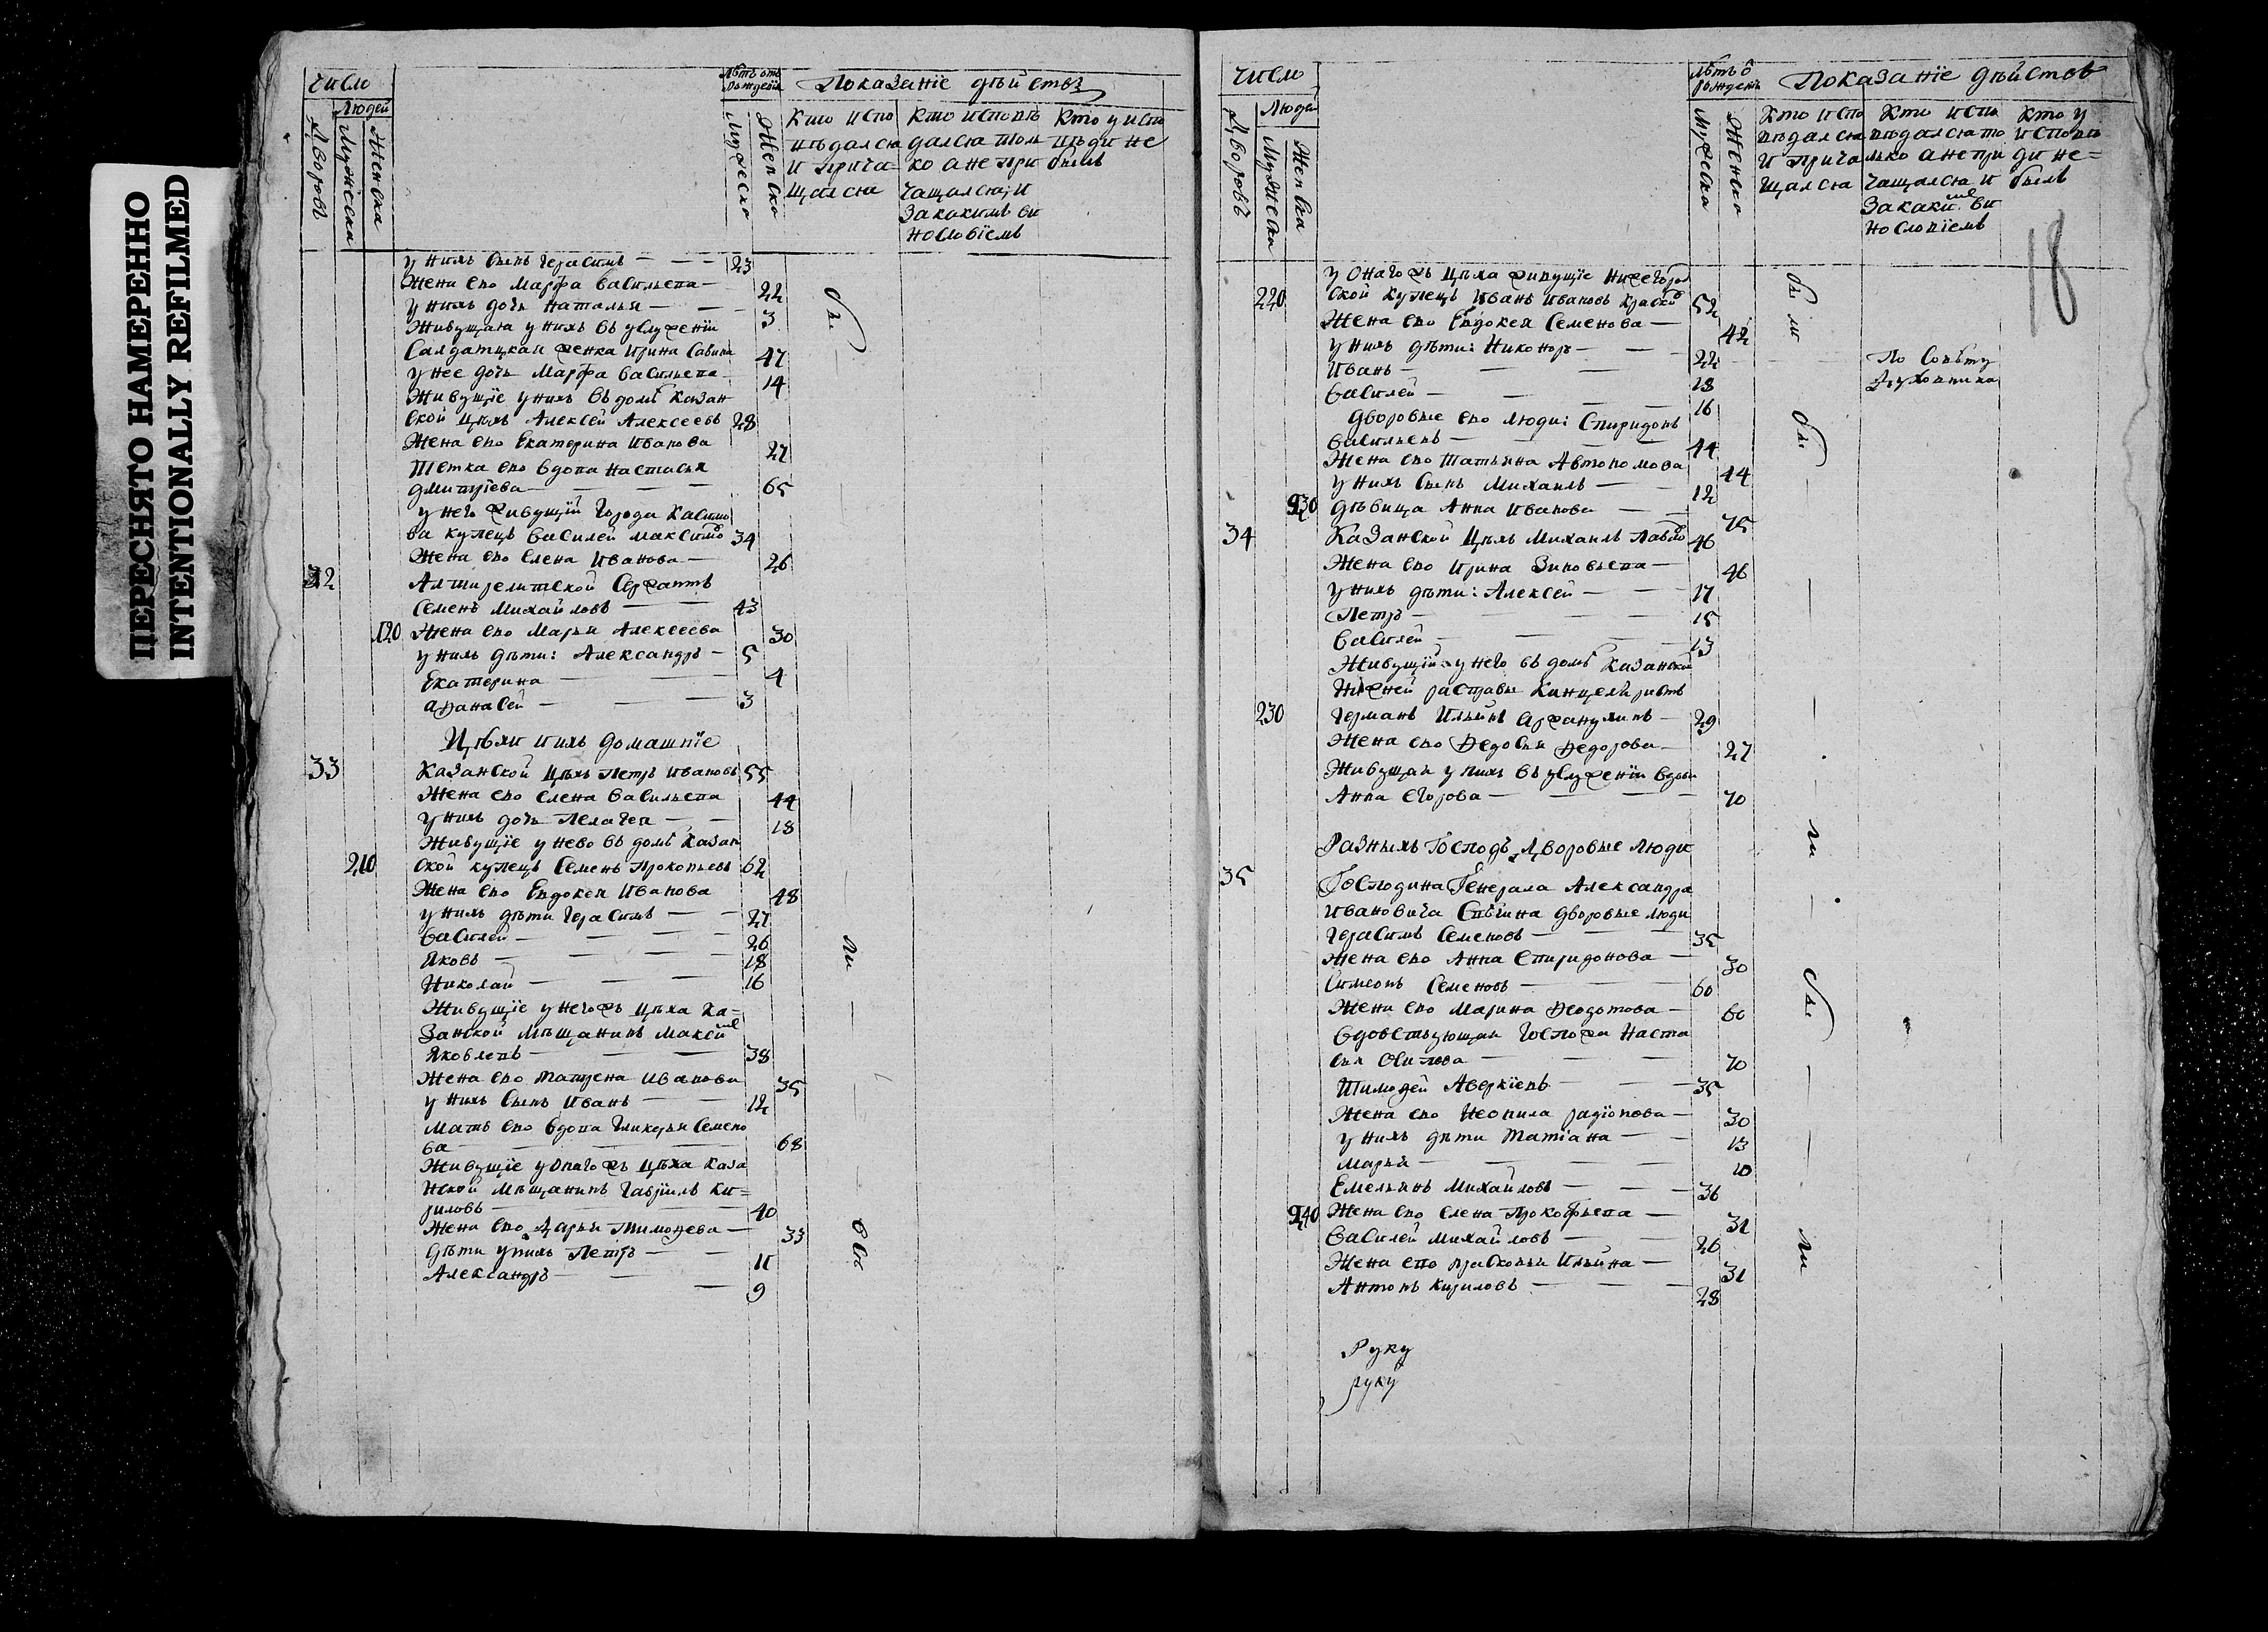 ПЕРЕСНЯТО НАМЕРЕННО
INTENTIONALLY REFILMED
Число
Людей
Дворовъ
Мужеска
Женска
Лѣтъ отъ рожденїя
Мужеска
Женска
Показанїе дѣйствъ
Кто испо
вѣдался
и прича=
щался
Кто исповѣ
дался толь
ко а не при
чащался, и
за какимъ ви
нословїемъ
Кто у испо
вѣди не
былъ
у нихъ сынъ Герасимъ — 23
Жена ево Марфа Васильева — 22
у нихъ дочь Наталья — 3
Живущая у нихъ въ услуженїи
Салдатцкая женка Ирина Савина 47
у нее дочь Марфа Васильева 14
Живущїе у нихъ въ домѣ Казан
ской цѣхъ Алексей Алексеевъ 28
Жена ево Екатерина Иванова 27
Тетка ево вдова Настасья
Дмитрїева — 65
у него живущїй города Касимо
ва купецъ Василей Максимо 34
Жена ево Елена Иванова — 26
32
Сержантъ
Семенъ Михайловъ — 43
Жена ево Марья Алексеева 30
у нихъ дѣти: Александръ — 5
Екатерина — 4
Афанасей — 3
Цѣхи и ихъ домашнїе
33 Казанской цѣхъ Петръ Ивановъ 55
Жена ево Елена Васильева 44
у нихъ дочь Пелагея — 18
Живущїе у нево въ домѣ Казан
210 ской купецъ Семенъ Прокопьевъ 62
Жена ево Евдокея Иванова 48
у нихъ дѣти Герасимъ — 27
Василей — 26
Яковъ — 18
Николай — 16
Живущїе у негожъ цѣха Ка=
занской мѣщанинъ Максимъ
Яковлевъ — 38
Жена ево Матрена Иванова 35
у нихъ сынъ Иванъ — 12
Мать ево вдова Гликерья Семено
ва — 68
Живущїе у онагожъ цѣха Каза
нской мѣщанинъ Гаврїилъ Ки=
риловъ — 40
Жена ево Дарья Тимофева — 33
Дѣти у нихъ Петръ — 11
Александръ — 9
бы
ли
Число
Людей
Дворовъ
Мужеска
Женска
Лѣтъ ѿ рожденїя
Мужеска
Женска
Показанїе дѣйствъ
Кто испо
вѣдался
и прича
щался
Кто испо
вѣдался то
лько а не при
чащался и
за какимъ ви
нословїемъ
Кто у
исповѣ
ди не=
былъ
18
у онагожъ цѣха живущїе Нижегород
220 ской купецъ Иванъ Ивановъ 52
Жена ево Евдокея Семенова — 42
у нихъ дѣти: Никоноръ — 22
Иванъ — 18
Василей — 16
По совѣту
духовника
Дворовые ево люди: Спиридонъ
Васильевъ — 44
Жена ево Татьяна Автономова 44
у нихъ сынъ Михаилъ — 12
230 Дѣвица Анна Иванова — 75
34 Казанской цѣхъ Михаилъ Павло 46
Жена ево Ирина Зиновьева — 46
у нихъ дѣти: Алексей — 17
Петръ — 15
Василей — 13
Живущїй у него въ домѣ Казанской
Нижней расправы Канцеляристъ
230 Германъ Ильинъ — 29
Жена ево Федосья Федорова — 27
Живущая у нихъ въ услуженїи вдова
Анна Егорова — 70
Разныхъ Господъ Дворовые люди
35 Господина Генерала Александра
Ивановича Свечина дворовые люди
Герасимъ Семеновъ — 35
Жена ево Анна Спиридонова — 30
Симеонъ Семеновъ — 60
Жена ево Марина Федотова — 60
Вдовствующая Госпожа Наста
сья Осипова — 70
Тимофей Аверкїевъ — 35
Жена ево Неонила Радїонова — 30
у нихъ дѣти Татїана — 13
Марья — 10
Емельянъ Михайловъ — 36
240 Жена ево Елена Прокофьева — 31
Василей Михайловъ — 26
Жена ево Прасковья Ильина — 31
Антонъ Кириловъ — 28
бы
ли
бы
ли
Руку
руку